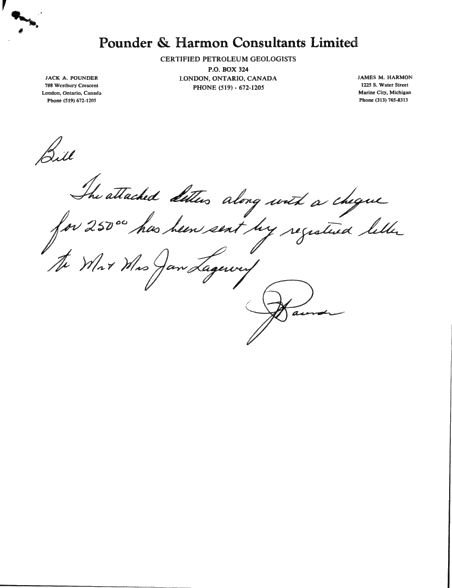 Pounder & Harmon Consultants Limited
CERTIFIED PETROLEUM GEOLOGISTS
P.O. BOX 324
LONDON, ONTARIO, CANADA
PHONE (519) - 672-1205
JACK A. POUNDER
708 Westbury Crescent
London, Ontario, Canada
Phone (519) 672-1205
JAMES M. HARMON
1225 S. Water Street
Marine City, Michigan
Phone (313) 765-8313
Bill
The attached letters along with a cheque
for 250⁰⁰ has been sent by registered letter
to Mr & Mrs Jan Lagerwey
JPounder